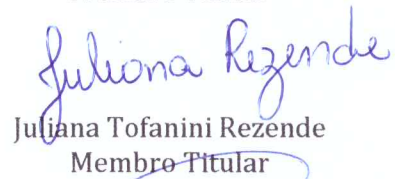 Juliana Rezende
Juliana Tofanini Rezende
Membro Titular